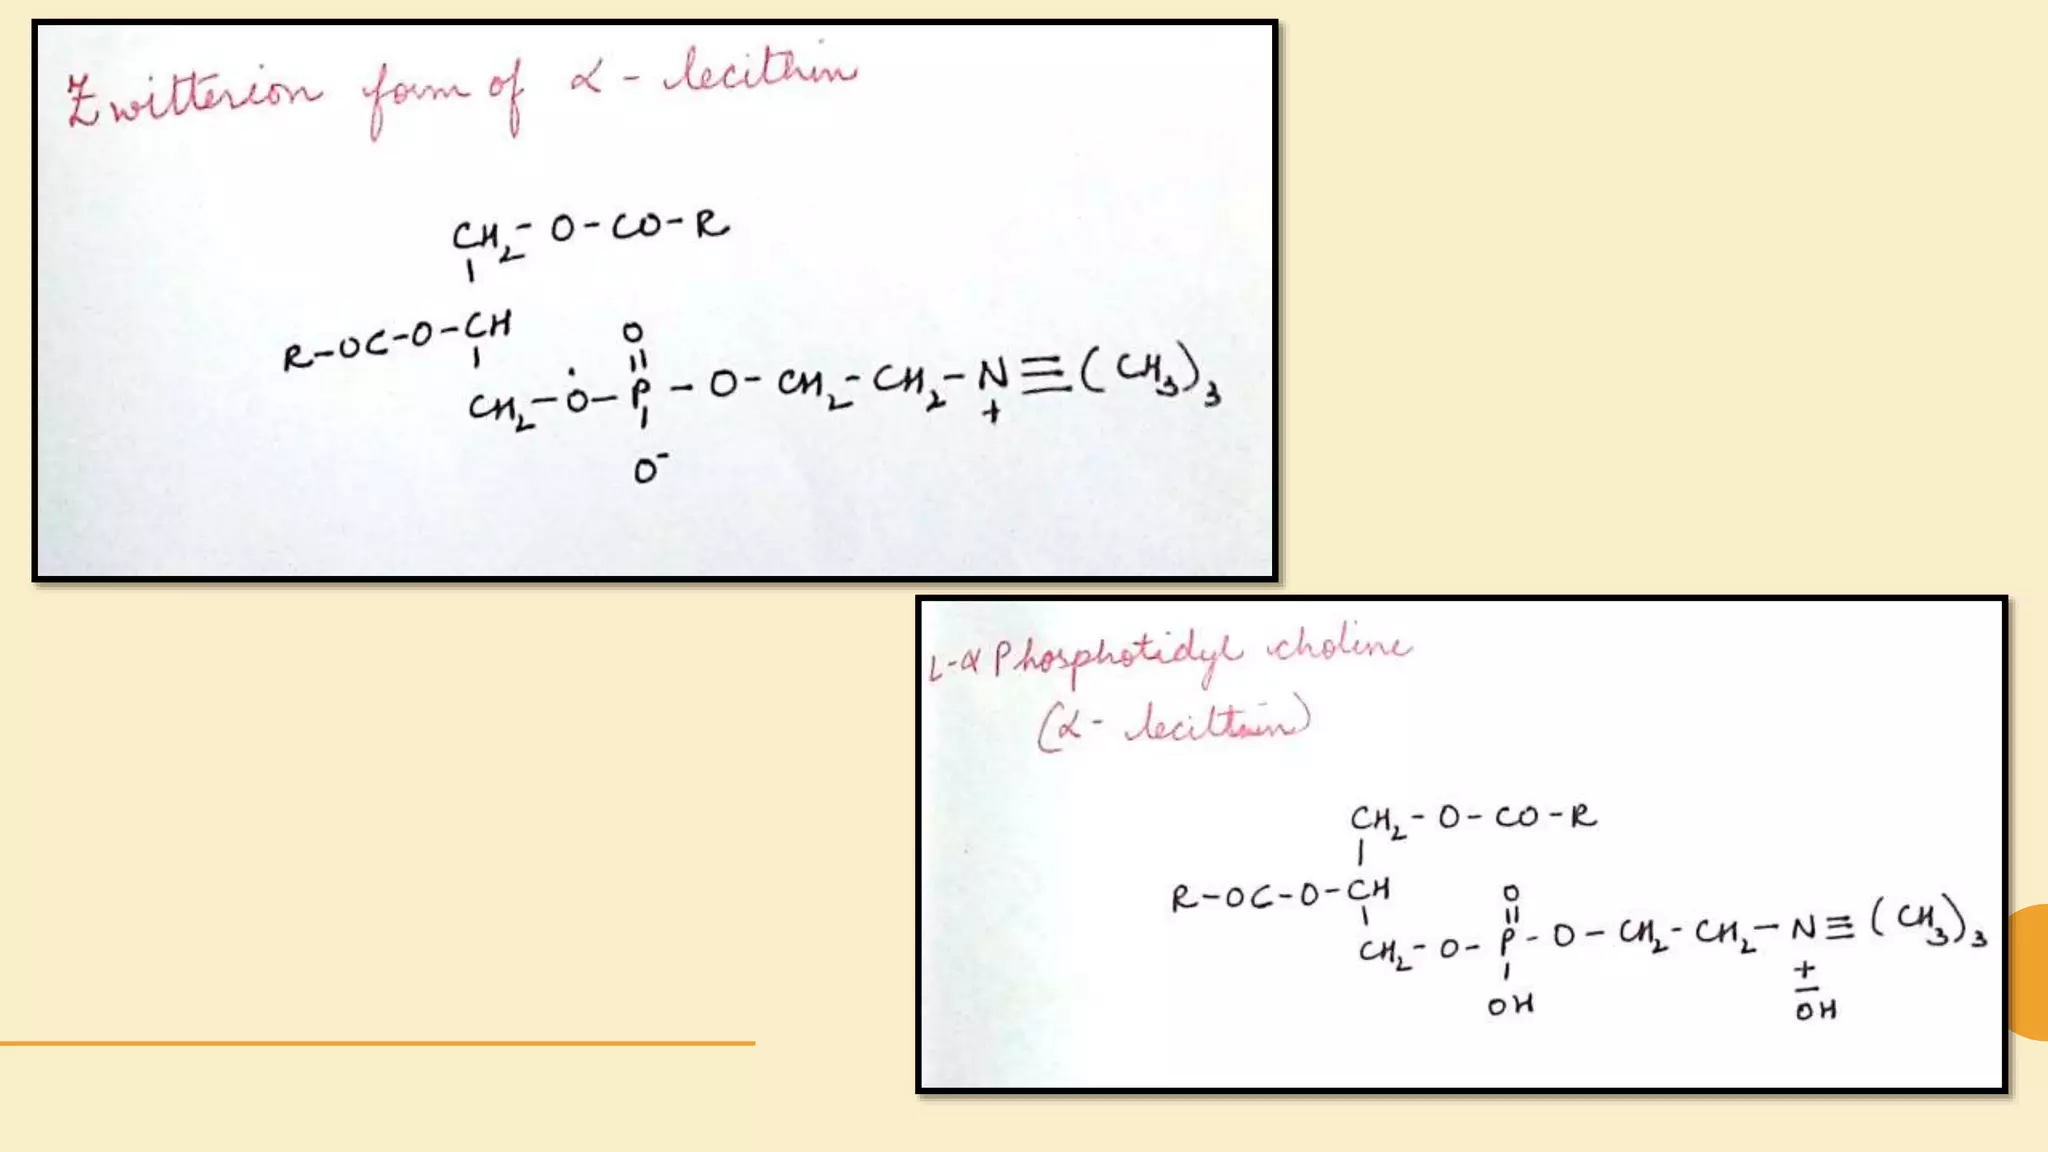 Zwitterion form of α - lecithin
CH₂ - O - CO - R
R - OC - O - CH
O
CH₂ - O - P - O - CH₂ - CH₂ - N ≡ (CH₃)₃
+
O⁻
L-α Phosphotidyl choline
(α - lecithin)
CH₂ - O - CO - R
R - OC - O - CH
O
CH₂ - O - P - O - CH₂ - CH₂ - N ≡ (CH₃)₃
+
OH
O̅H